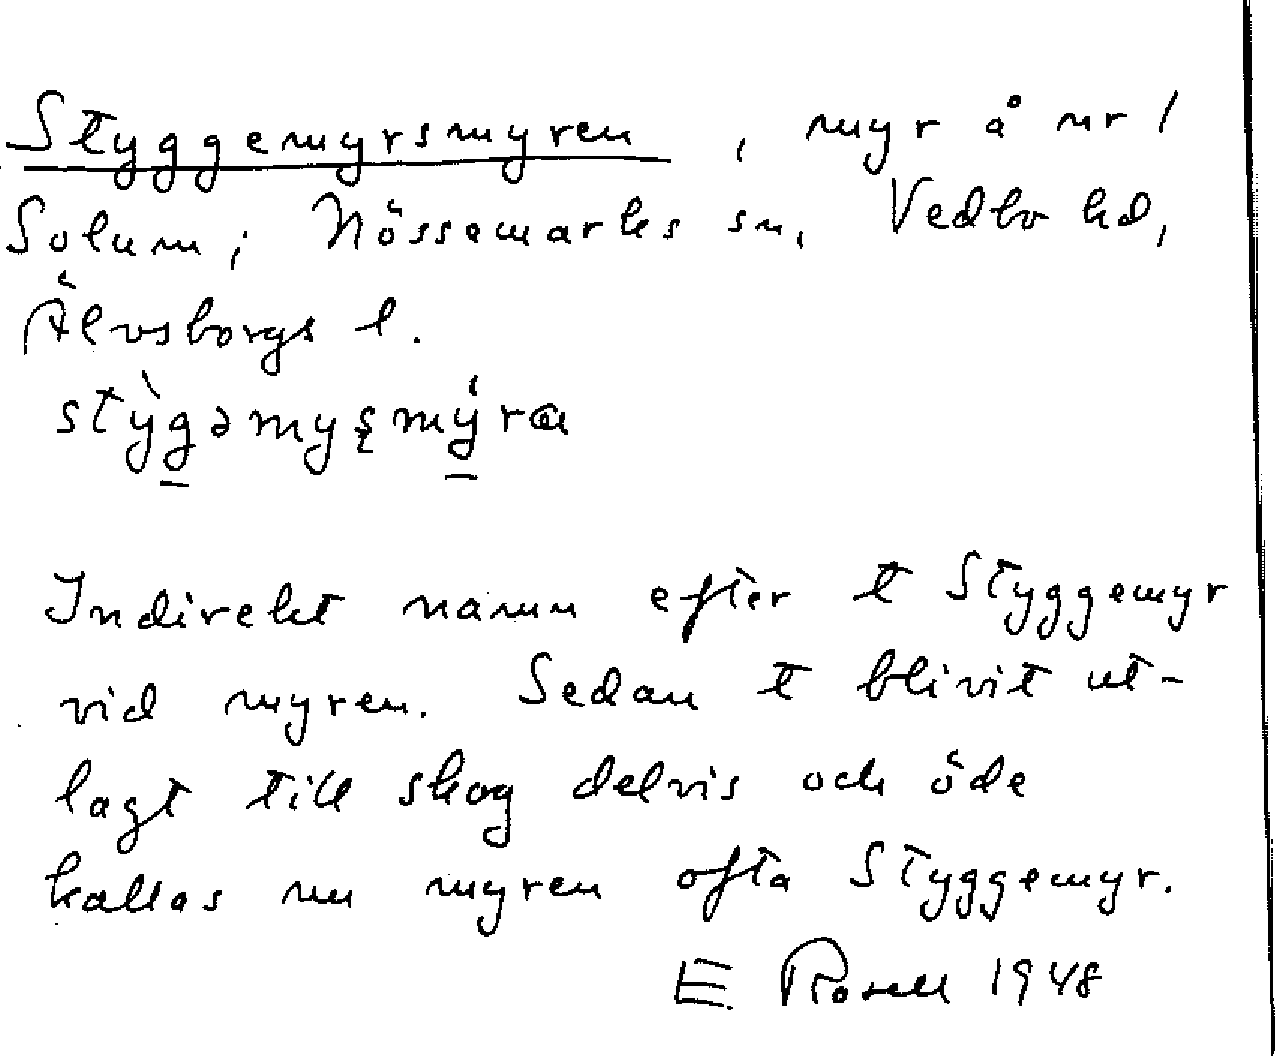 Styggemyrsmyren, myr å nr 1
Solum, Nössemarks sn, Vedbo hd,
Älvsborgs l.
stỳgəmyʂmýra
Indirekt namn efter t Styggemyr
vid myren. Sedan t blivit ut-
lagt till skog delvis och öde
kallas nu myren ofta Styggemyr.
E Rosell 1948